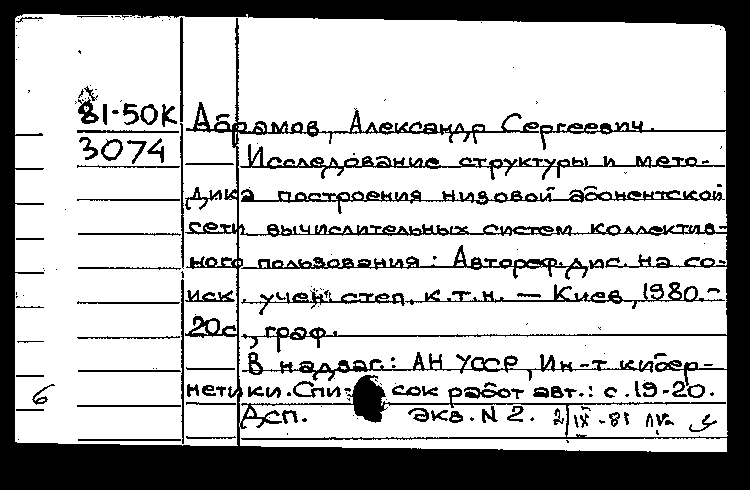 81-50К Абрамов, Александр Сергеевич.
3074 Исследование структуры и мето-
дика построения низовой абонентской
сети вычислительных систем коллектив-
ного пользования: Автореф. дис. на со-
иск. учен. степ. к.т.н. — Киев, 1980.-
20с., граф.
В надзаг.: АН УССР, Ин-т кибер-
6 нетики. Спи- сок работ авт.: с. 19-20.
Дсп. экз. N 2. 2/IX-81